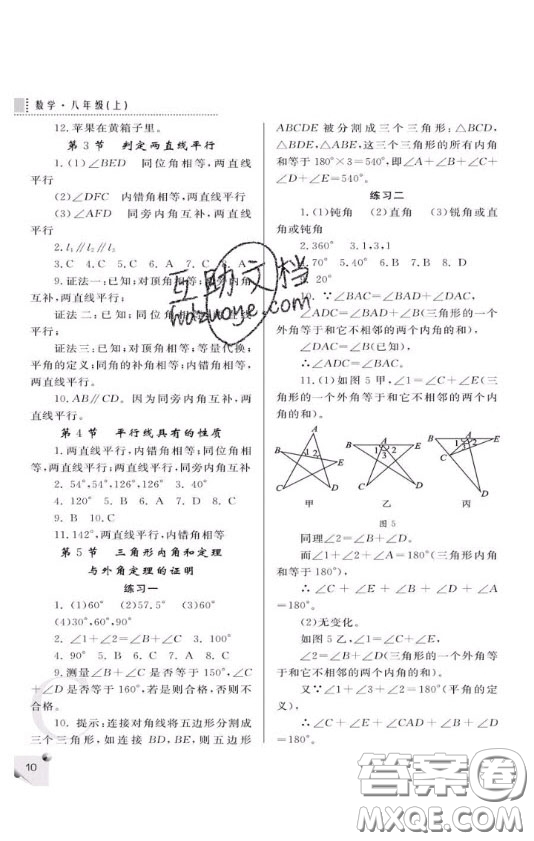 数学·八年级(上)
12.苹果在黄箱子里。
第3节 判定两直线平行
1.(1)∠BED 同位角相等,两直线
平行
(2)∠DFC 内错角相等,两直线平行
(3)∠AFD 同旁内角互补,两直线
平行
2.l₁∥l₂∥l₃
3.C 4.C 5.C 6.A 7.C 8.
9.证法一:已知;对顶角相等;同旁内角
互补,两直线平行;
证法二:已知;对顶角相等;同位角相
等,两直线平行;
证法三:已知;对顶角相等;等量代换;
平角的定义;同角的补角相等;内错角相等,
两直线平行。
10.AB∥CD。因为同旁内角互补,两
直线平行。
第4节 平行线具有的性质
1.两直线平行,内错角相等;同位角相
等,两直线平行;两直线平行,同旁内角互补
2.54°,54°,126°,126° 3.40°
4.120° 5.B 6.A 7.D 8.C
9.B 10.C
11.142°,两直线平行,内错角相等
第5节 三角形内角和定理
与外角定理的证明
练习一
1.(1)60° (2)57.5° (3)60°
(4)30°,60°,90°
2.∠1+∠2=∠B+∠C 3.110°
4.90° 5.C 6.A 7.C 8.A
9.测量∠B+∠C是否等于150°,∠C
+∠D是否等于160°,若是则合格,否则不
合格。
10.提示:连接对角线将五边形分割成
三个三角形,如连接BD,BE,则五边形
10
ABCDE被分割成三个三角形:△BCD,
△BDE,△ABE,这三个三角形的所有内角
和等于180°×3=540°,即∠A+∠B+∠C+
∠D+∠E=540°。
练习二
1.(1)钝角 (2)直角 (3)锐角或直
角或钝角
2.360° 3.1,3,1
70° 5.40° 6.B 7.A 8.C
20°
∵∠BAC=∠BAD+∠DAC,
∠ADC=∠BAD+∠B(三角形的一
个外角等于和它不相邻的两个内角的和),
∠DAC=∠B(已知),
∴∠ADC=∠BAC。
11.(1)如图5甲,∠1=∠C+∠E(三
角形的一个外角等于和它不相邻的两个内
角的和)。
A
B
1
2
E
C
D
甲
B
A
E
1
3
2
C
D
乙
B
A
E
1
3
2
C
D
丙
图5
同理∠2=∠B+∠D。
而∠1+∠2+∠A=180°(三角形内角
和等于180°),
∴∠C+∠E+∠B+∠D+∠A
=180°。
(2)无变化。
如图5乙,∵∠1=∠C+∠E,
∠2=∠B+∠D(三角形的一个外角等
于和它不相邻的两个内角的和),
又∵∠1+∠3+∠2=180°(平角的定
义),
∴∠C+∠E+∠CAD+∠B+∠D
=180°。
互助文档
hdzuoye.com
答案圈
MXQE.COM